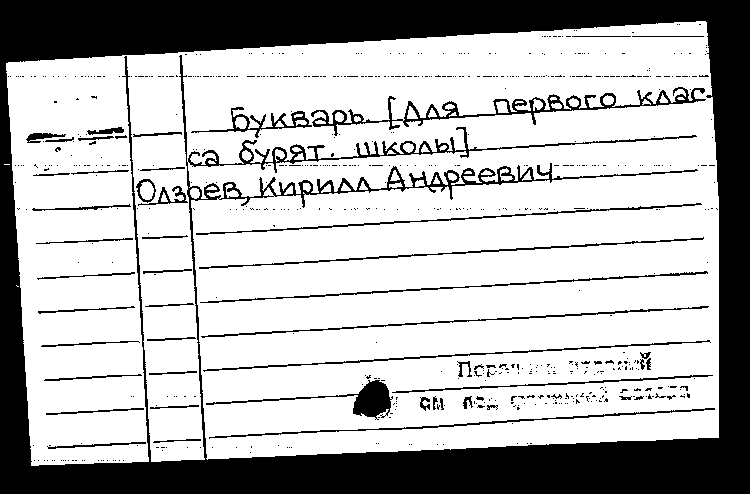 Букварь. [Для первого клас-
са бурят. школы].
Олзоев, Кирилл Андреевич.
см под